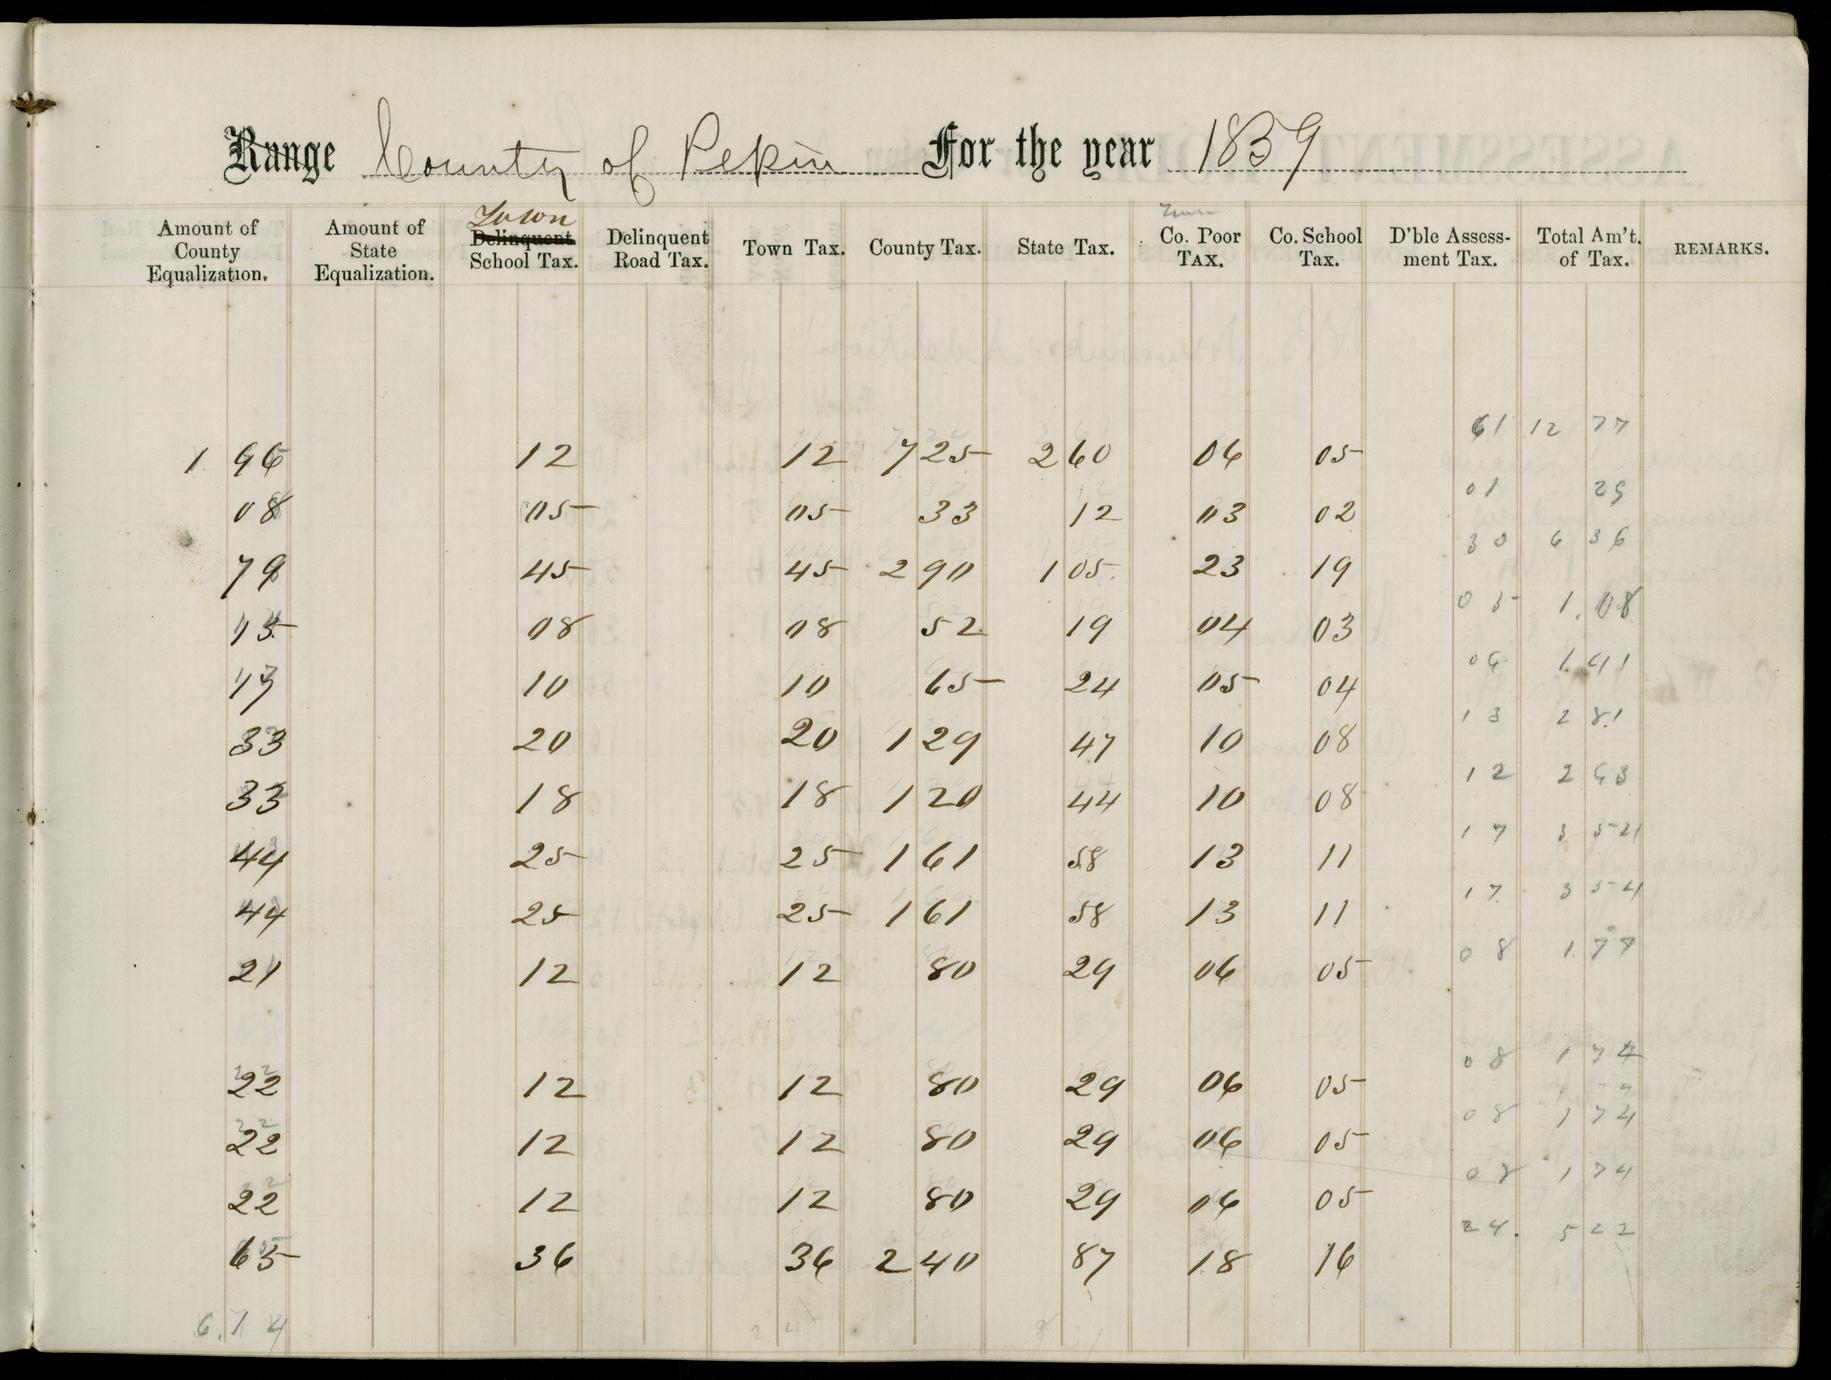 Range County of Pekin For the year 1859
Amount of County Equalization. Amount of State Equalization. Town Delinquent School Tax. Delinquent Road Tax. Town Tax. County Tax. State Tax. Town Co. Poor Tax. Co. School Tax. D'ble Assess-ment Tax. Total Am't. of Tax. REMARKS.
61 12 77
1 96 12 12 7 25 2 60 06 05
01 29
08 05 05 33 12 03 02
30 6 36
79 45 45 2 90 1 05 23 19
05 1.08
15 08 08 52 19 04 03
06 1.41
17 10 10 65 24 05 04
13 2 81
33 20 20 1 29 47 10 08
12 2 63
33 18 18 1 20 44 10 08
17 3 54
44 25 25 1 61 58 13 11
17 3 54
44 25 25 1 61 58 13 11
08 1.77
21 12 12 80 29 06 05
08 1 74
22 12 12 80 29 06 05
08 1 74
22 12 12 80 29 06 05
08 1 74
22 12 12 80 29 06 05
24. 5 22
65 36 36 2 40 87 18 16
6.74